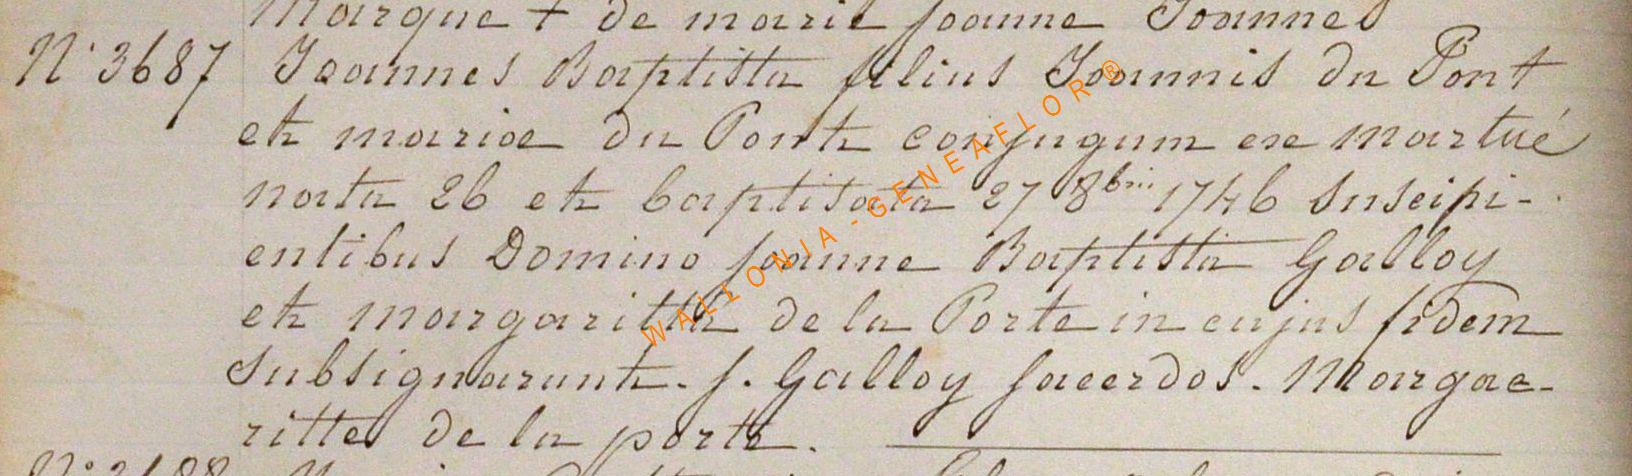 Marque + de marie joanne Joannes
N° 3687 Joannes Baptista filius Joannis du Pont
et mariae du Pont conjugum ex martué
nata 26 et baptisata 27 8bris 1746 Suscipi-
entibus Domino joanne Baptista Galloy
et margaritta de la Porte in cujus fidem
subsignarunt. j. Galloy sacerdos. Margae-
rittes de la porte.
N° 3688
WALLONIA - GENEAFLOR®